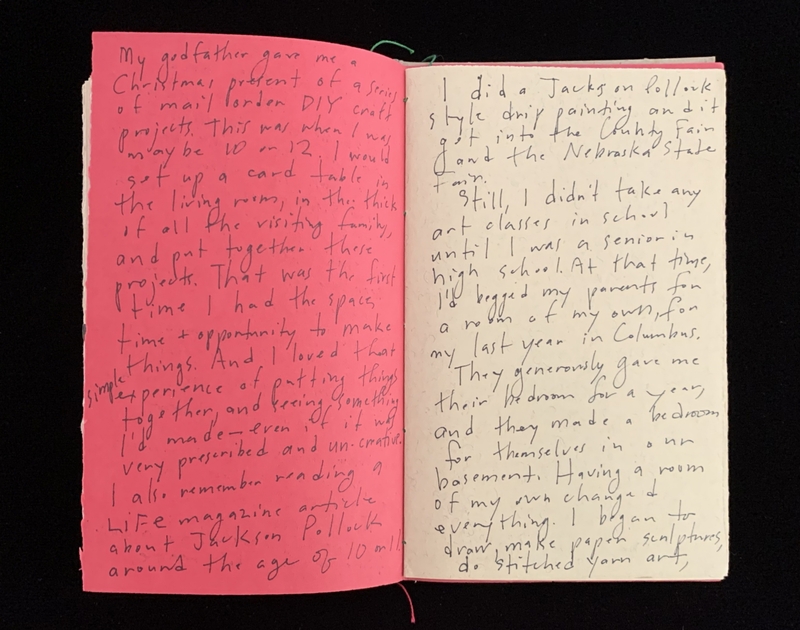 My godfather gave me a
Christmas present of a series
of mail order DIY craft
projects. This was when I was
maybe 10 or 12. I would
set up a card table in
the living room, in the thick
of all the visiting family,
and put together these
projects. That was the first
time I had the space,
time + opportunity to make
things. And I loved that
simple experience of putting things
together, and seeing something
I'd made—even if it was
very prescribed and un-creative.
I also remember reading a
LiFE magazine article
about Jackson Pollock
around the age of 10 or 11.
I did a Jackson Pollock
style drip painting and it
got into the County Fair
and the Nebraska State
Fair.
Still, I didn't take any
art classes in school
until I was a senior in
high school. At that time,
I'd begged my parents for
a room of my own, for
my last year in Columbus.
They generously gave me
their bedroom for a year,
and they made a bedroom
for themselves in our
basement. Having a room
of my own changed
everything. I began to
draw, make paper sculptures,
do stitched yarn art,